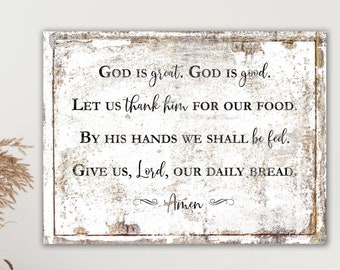 God is great. God is good.
Let us thank him for our food.
By his hands we shall be fed.
Give us, Lord, our daily bread.
Amen